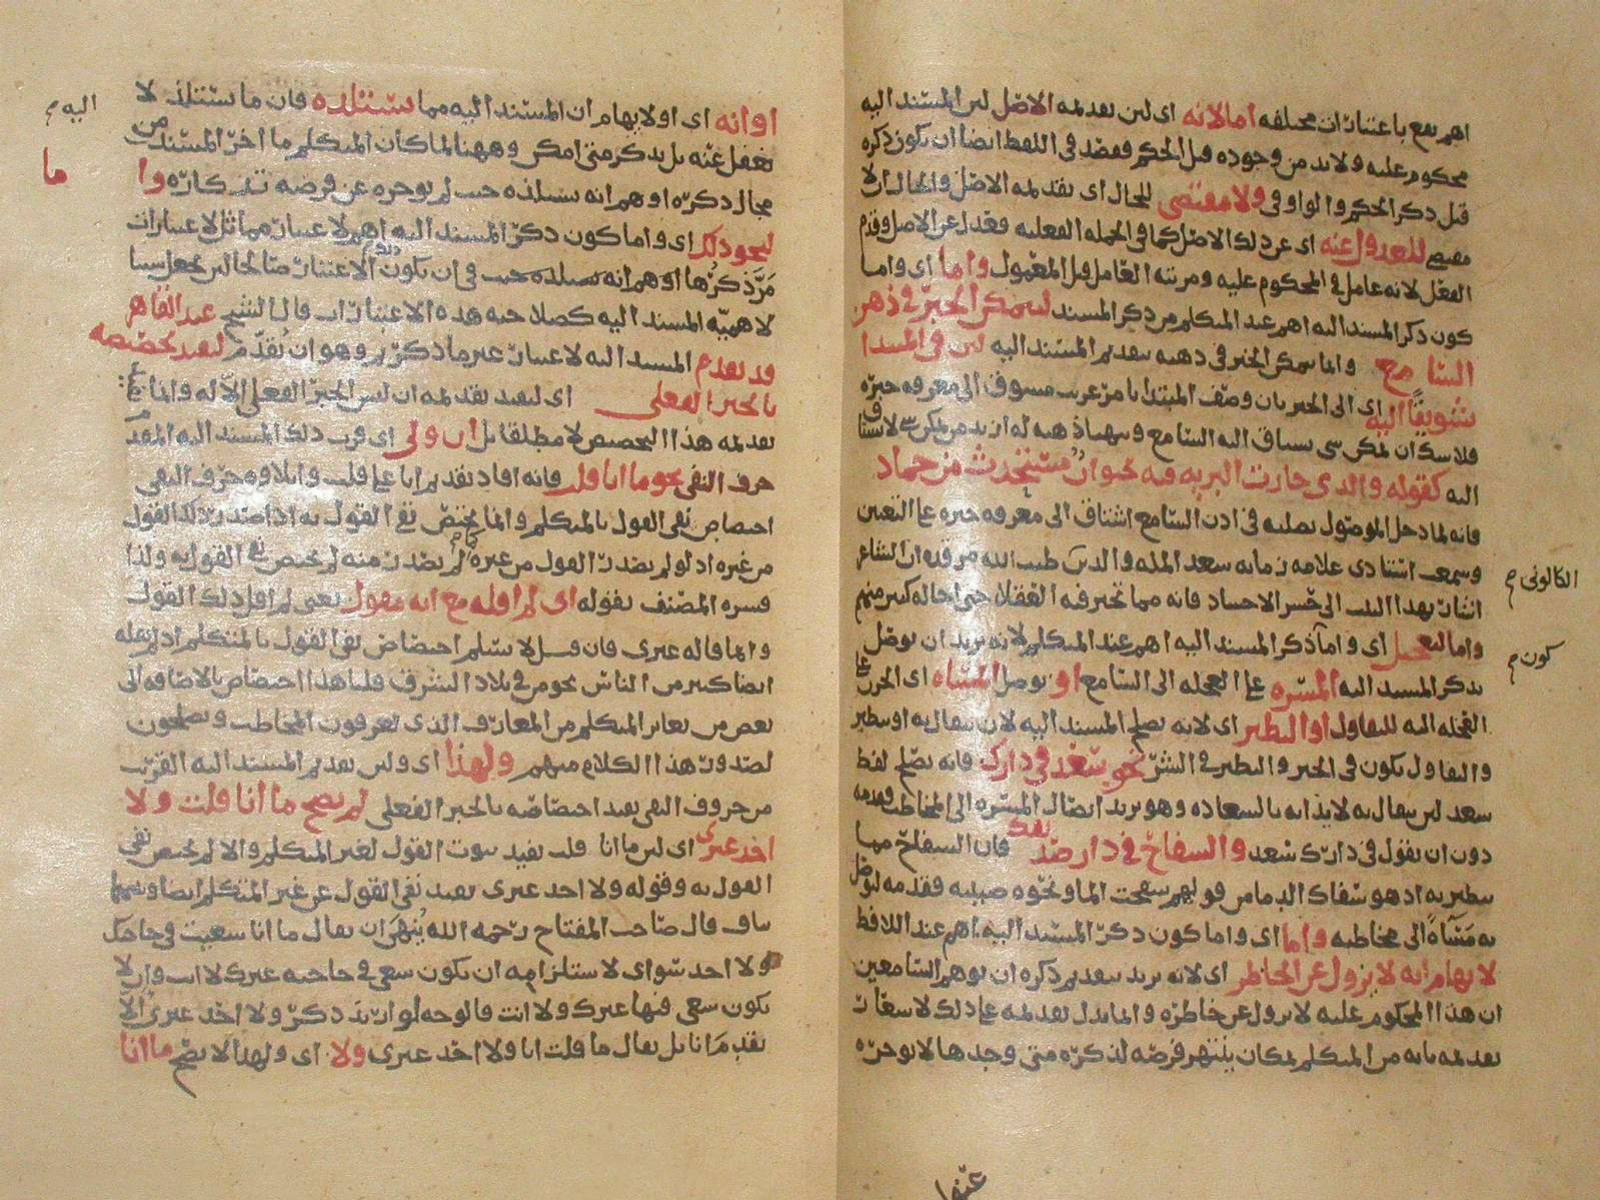 اهم يقع باعتبارات مختلفه اما لانه اى لىن تقديمه الاصل لىن المسند اليه
محكوم عليه ولابد من وجوده قبل الحكم فقصد فى اللفظ ايضا ان يكون ذكره
قبل ذكر الحكم والواو فى ولا مقتضى للحال اى تقديمه الاصل والحال ان لا
مقتضى للعدول عنه اى عن ذلك الاصل كما فى الجمله الفعليه فقد عدل عن الاصل وقدم
الفعل لانه عامل فى المحكوم عليه ومرتبه العامل قبل المعمول واما اى واما
كون ذكر المسند اليه اهم عند المتكلم من ذكر المسند ليتمكن الخبر فى ذهن
السامع وانما يتمكن الخبر فى ذهنه بتقديم المسند اليه لىن فى المبتدا
تشويقا اليه اى الى الخبر بان وصف المبتدا بامر غريب مشوق الى معرفه خبره
فلا شك ان تمكن شى يساق اليه السامع ويتهيا ذهنه له ازيد من تمكن شى لا يساق
اليه كقوله والذى حارت البريه فيه حيوان مستحدث من جماد
فانه لما دخل الموصول بصلته فى اذن السامع اشتاق الى معرفه خبره على التعيين
وسمعت استادى علامه زمانه سعد المله والدين طيب الله مرقده ان الشاعر
اشار بهذا البيت الى حشر الاجساد فانه مما تحير فيه العقلا حتى احاله كثير منهم
واما لتعجيل اى واما ذكر المسند اليه اهم عند المتكلم لانه يريد ان يوصل
بذكر المسند اليه المسره على العجله الى السامع او يوصل المساه اى الحزن على
العجله اليه للتفاول او التطير اى لانه يصلح المسند اليه لان يتفال به او يتطير
والتفاول يكون فى الخير والتطير فى الشر نحو سعد فى دارك فانه يصلح لفظ
سعد لىن يتفال به لايذانه بالسعاده وهو يريد ايصال المسره الى المخاطب فقدمه
دون ان يقول فى دارك سعد والسفاح فى دار صديقك فان السفاح مما
يتطير به اذ هو سفاك الدما من قولهم سفحت الما ونحوه صببته فقدمه ليوصل
به مساة الى مخاطبه واما اى واما كون ذكر المسند اليه اهم عند اللافظ
لايهام انه لا يزول عن الخاطر اى لانه يريد بتقديم ذكره ان يوهم السامعين
ان هذا المحكوم عليه لا يزول عن خاطره وانما يدل تقديمه على ذلك لاشعار
تقديمه بانه من المتكلم بمكان ينتهز فرصه لذكره متى وجدها لا يوخره
الكالونى م
كون م
عنها
او انه اى او لايهام ان المسند اليه مما يستلذه فان ما يستلذ لا
يغفل عنه بل يذكر متى امكن وههنا لما كان المتكلم ما اخر المسند من
مجال ذكره اوهم انه يستلذه حيث لم يوخره عن فرصه تذكاره واما
لنحو ذلك اى واما كون ذكر المسند اليه اهم لاعتبار مماثل لاعتبارات
مر ذكرها اوهم انه يستلذه حيث فى ان يكون ذلك الاعتبار صالحا لىن يجعل سببا
لاهميه المسند اليه كصلاحيه هذه الاعتبارات قال الشيخ عبد القاهر
قد يقدم المسند اليه لاعتبار غير ما ذكر وهو ان يقدم ليفيد تخصيصه
بالخبر الفعلى اى ليفيد تقديمه ان ليس الخبر الفعلى الا له وانما
تقديمه هذا التخصيص لا مطلقا بل ان ولى اى قرب ذلك المسند اليه المقدم
حرف النفى نحو ما انا قلت فانه افاد تقديم انا على قلت وايلاوه حرف النفى
اختصاص نفى القول بالمتكلم وانما يختص نفى القول به اذا صدر ذلك القول
من غيره اذ لو لم يصدر القول من غيره كما لم يصدر منه لم يختص نفى القول به ولذا
فسره المصنف بقوله اى لم اقله مع انه مقول يعنى لم اقل ذلك القول
وانما قاله غيرى فان قيل لا نسلم اختصاص نفى القول بالمتكلم اذ لم يقله
ايضا كثير من الناس نحو من فى بلاد الشرق قلنا هذا اختصاص بالاضافه الى
بعض من يغاير المتكلم من المعارف الذى يعرفون المخاطب ويصلحون
لصدور هذا الكلام منهم ولهذا اى ولىن تقديم المسند اليه القريب
من حروف النفى يفيد اختصاصه بالخبر الفعلى لم يصح ما انا قلت ولا
احد غيرى اى لىن ما انا قلت يفيد ثبوت القول لغير المتكلم والا لم يختص نفى
القول به وقوله ولا احد غيرى يفيد نفى القول عن غير المتكلم ايضا وبينهما
تناف قال صاحب المفتاح رحمه الله ينهى ان يقال ما انا سعيت فى حاجتك
ولا احد سواى لاستلزامه ان يكون سعى فى حاجته غيرك لا انت وان لا
يكون سعى فيها غيرك ولا انت فالوجه لو اريد ذكر ولا احد غيرى الا
يقدم انا بل يقال ما قلت انا ولا احد غيرى ولا اى ولهذا لا يصح ما انا
اليه م
ما